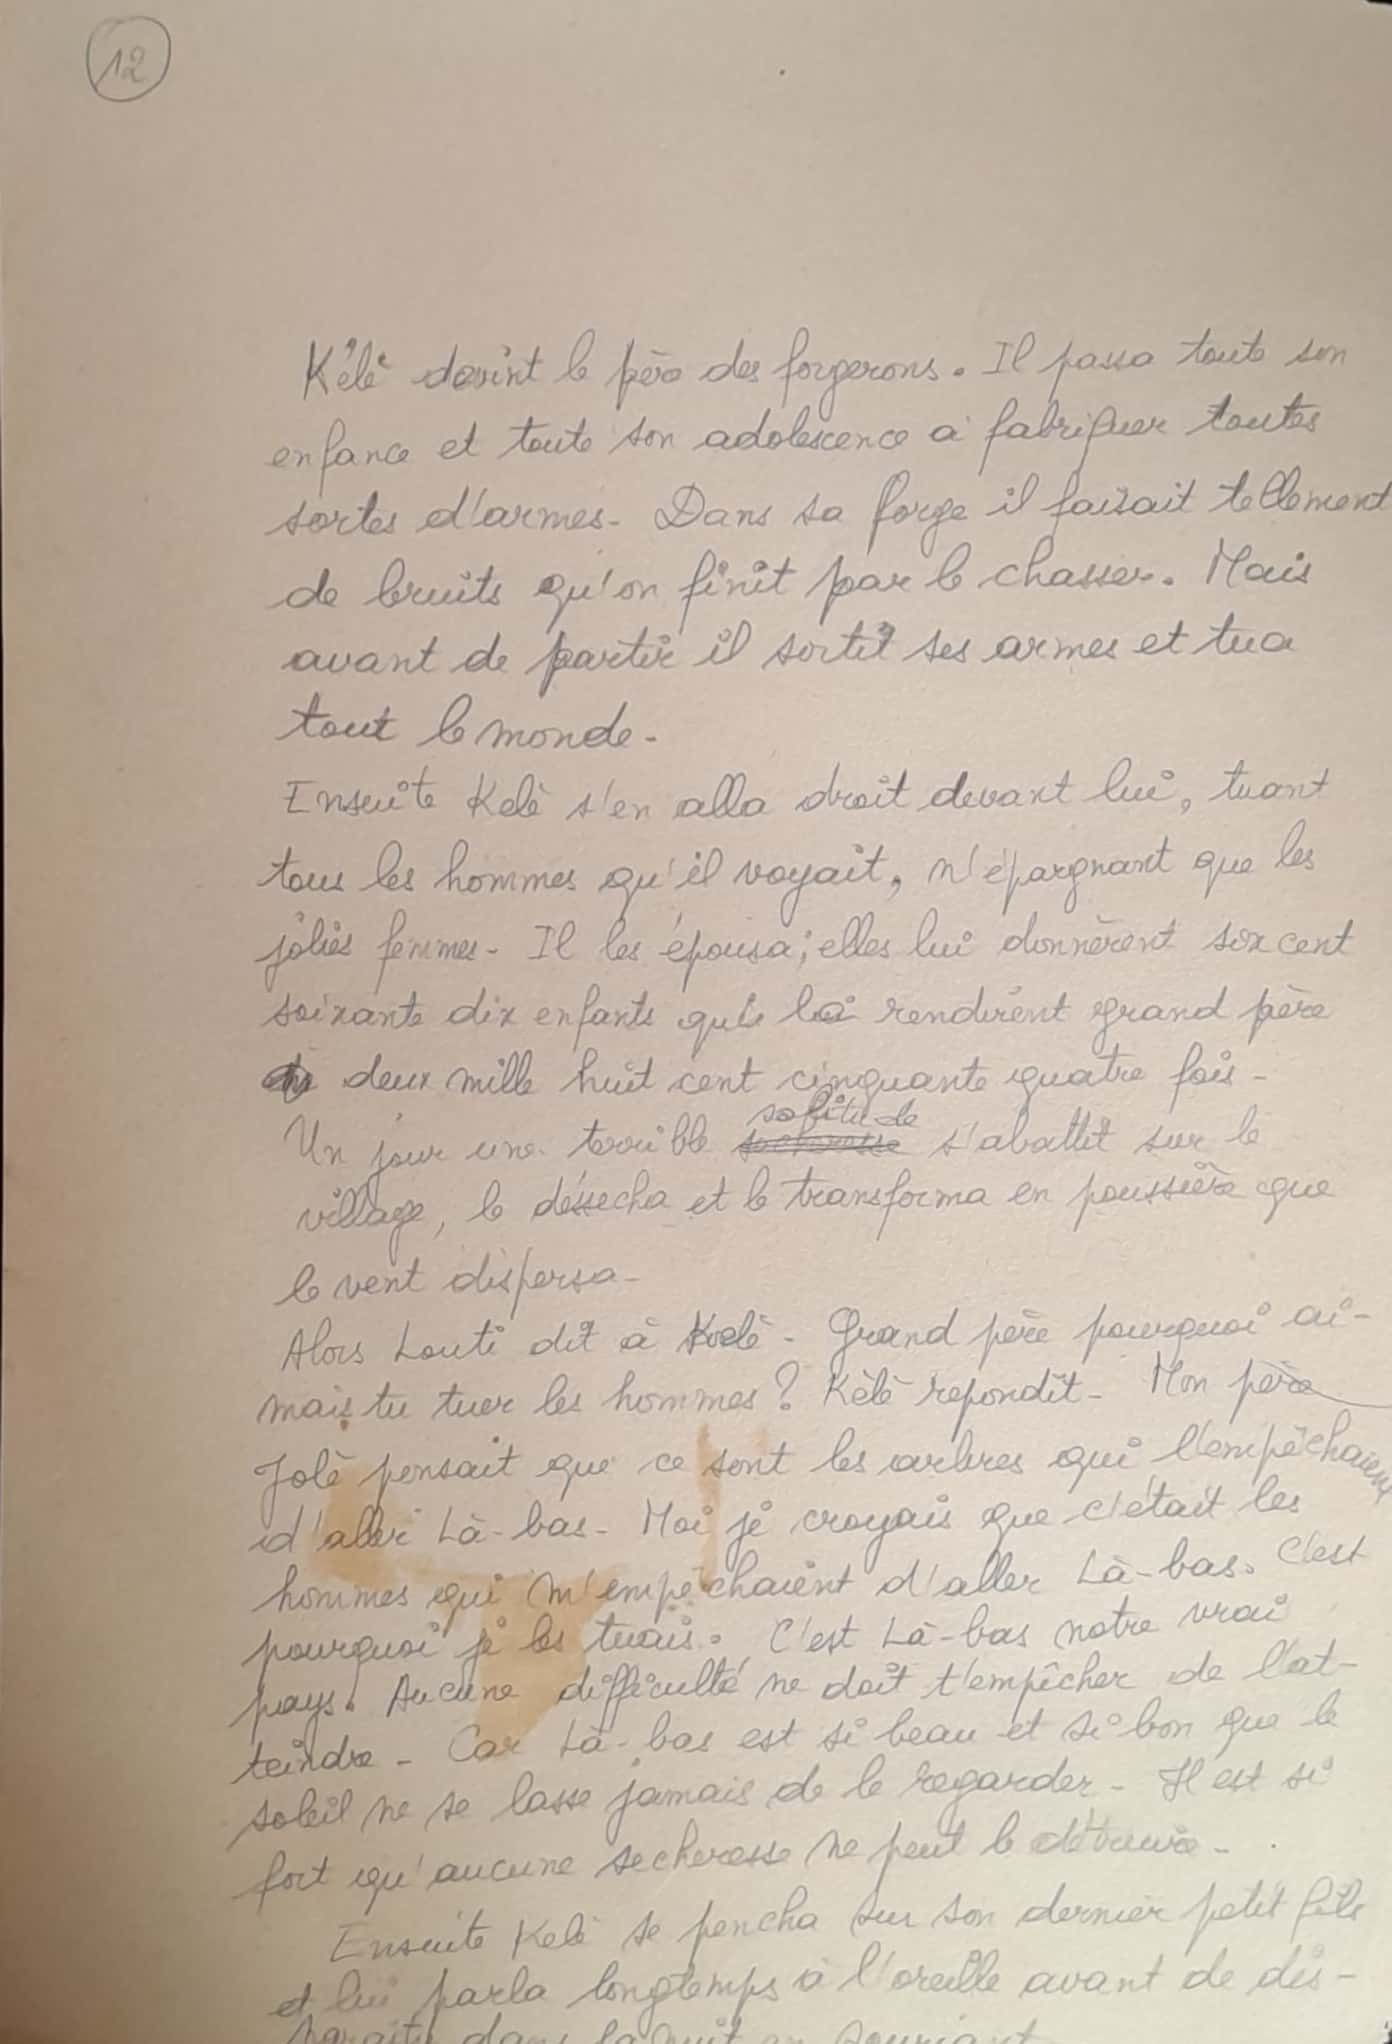 12
Kélé devint le père des forgerons. Il passa toute son
enfance et toute son adolescence à fabriquer toutes
sortes d'armes - Dans sa forge il faisait tellement
de bruits qu'on finit par le chasser. Mais
avant de partir il sortit ses armes et tua
tout le monde -
Ensuite Kélé s'en alla droit devant lui, tuant
tous les hommes qu'il voyait, n'épargnant que les
jolies femmes - Il les épousa; elles lui donnèrent six cent
soixante dix enfants qui le rendirent grand père
deux mille huit cent cinquante quatre fois -
solitude
Un jour une terrible secheresse s'abattit sur le
village, le déssecha et le transforma en poussière que
le vent dispersa -
Alors Louti dit à Kélé - Grand père pourquoi ai-
mais tu tuer les hommes ? Kèlè repondit - Mon père
Jolé pensait que ce sont les arbres qui l'empêchaient
d'aller Là-bas - Moi je croyais que c'était les
hommes qui m'empêchaient d'aller Là-bas. C'est
pourquoi je les tuais. C'est Là-bas notre vrai
pays. Aucune difficulté ne doit t'empêcher de l'at-
teindre - Car Là-bas est si beau et si bon que le
soleil ne se lasse jamais de le regarder - Il est si
fort qu'aucune secheresse ne peut le détruire -
Ensuite Kelé se pencha sur son dernier petit fils
et lui parla longtemps à l'oreille avant de dis-
paraître dans la nuit en souriant